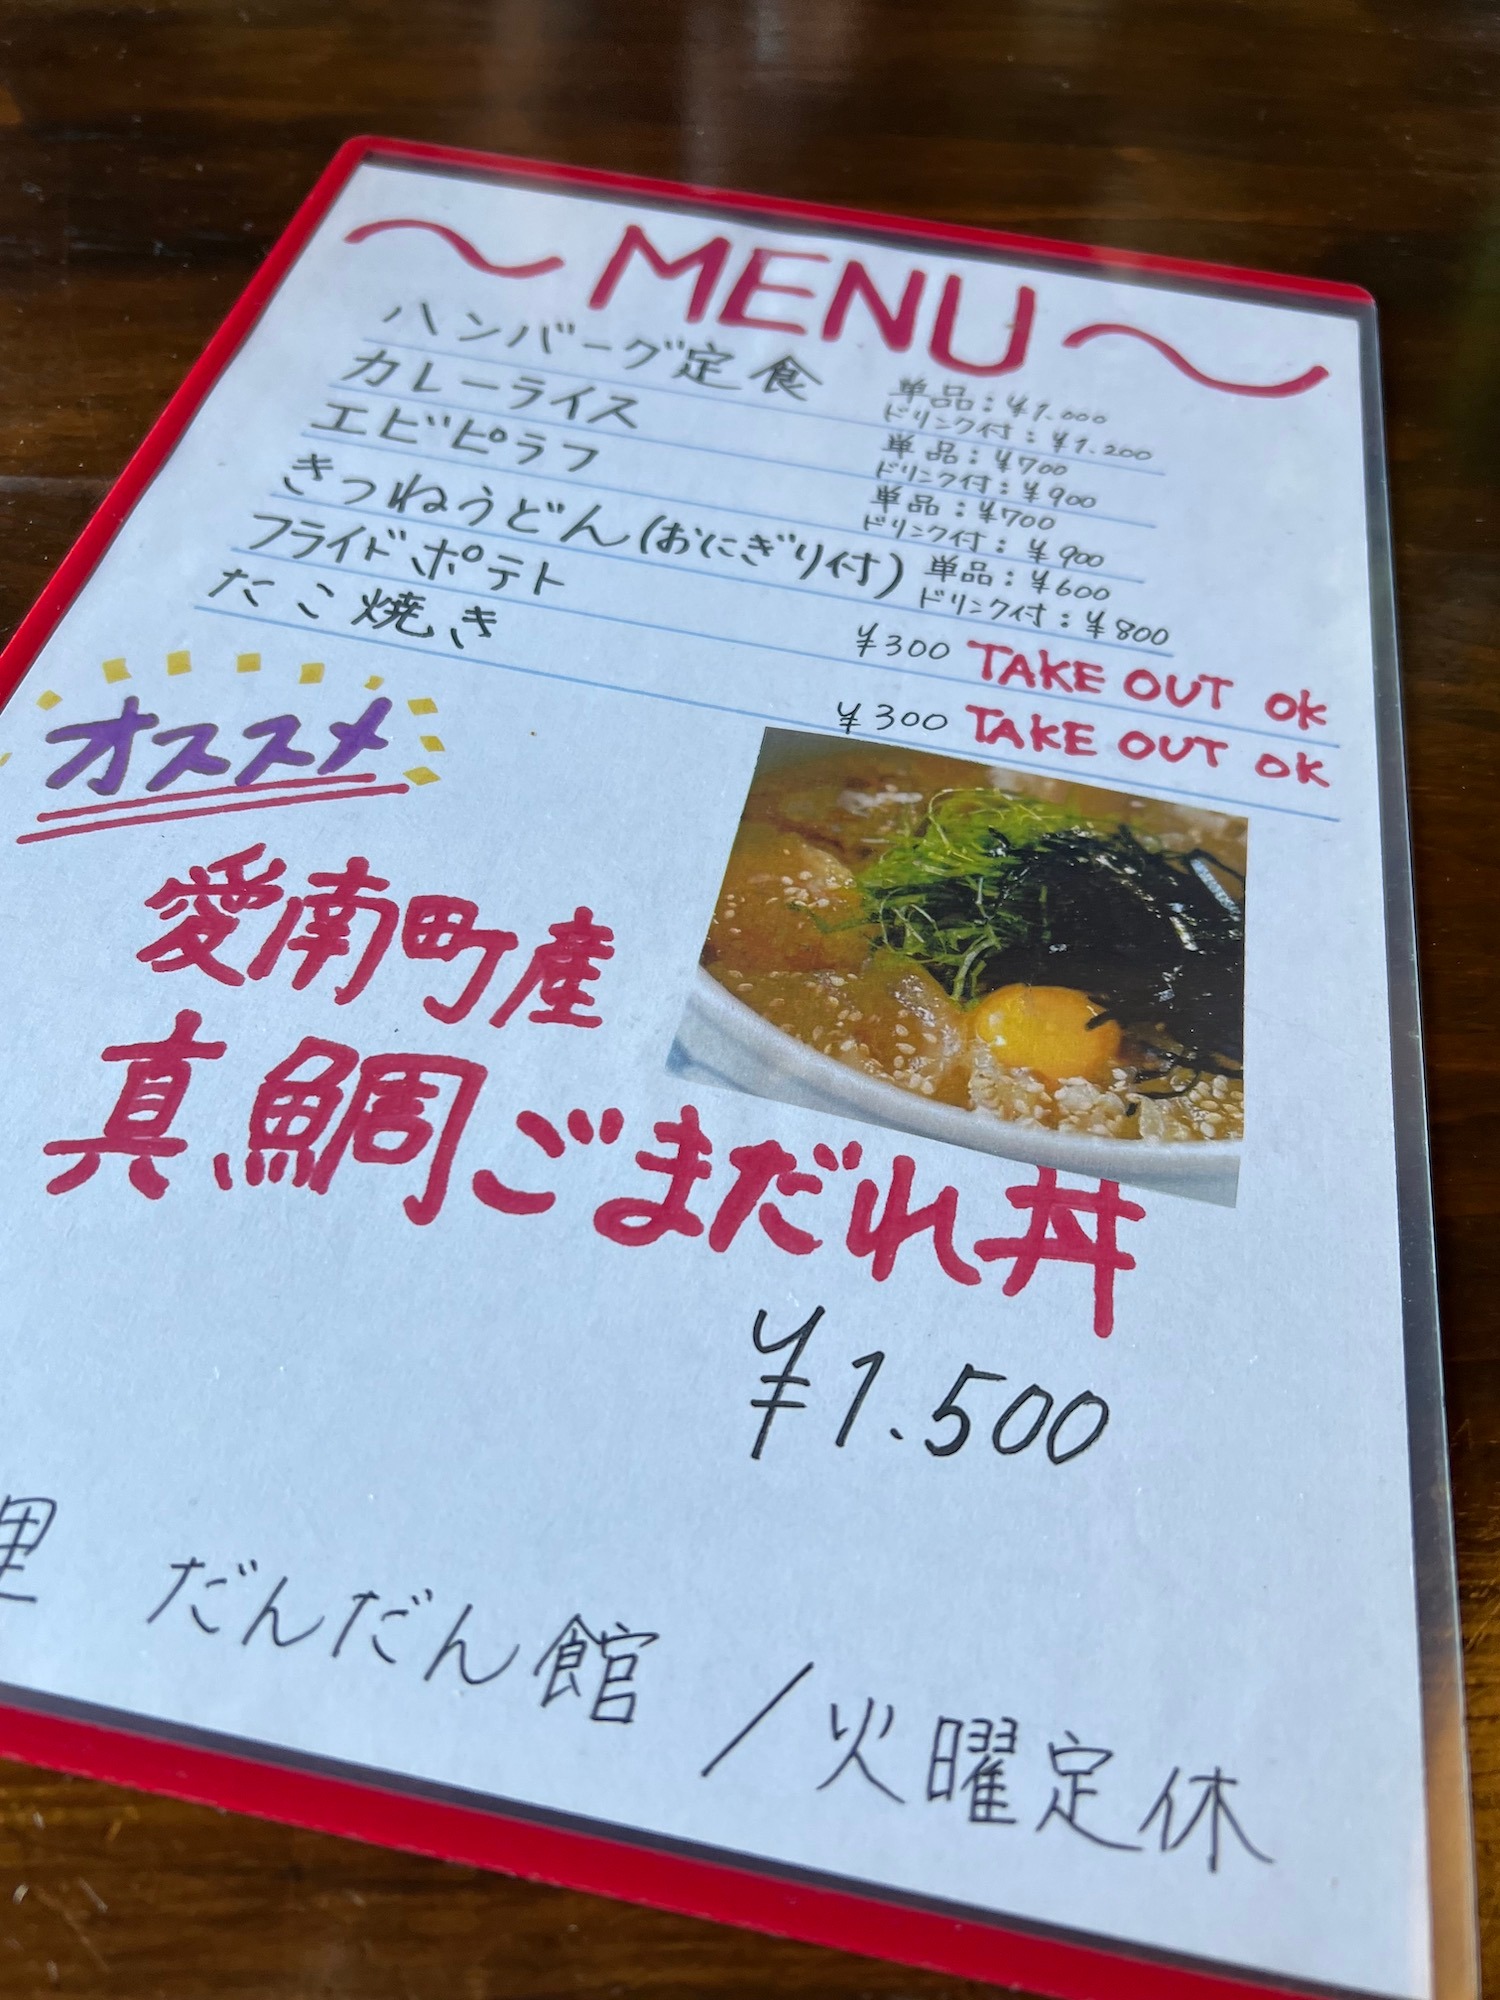 ～MENU～
ハンバーグ定食 単品：¥1.000
ドリンク付：¥1.200
カレーライス 単品：¥700
ドリンク付：¥900
エビピラフ 単品：¥700
ドリンク付：¥900
きつねうどん(おにぎり付) 単品：¥600
ドリンク付：¥800
フライドポテト ¥300 TAKE OUT OK
たこ焼き ¥300 TAKE OUT OK
オススメ
愛南町産
真鯛ごまだれ丼
¥1.500
だんだん館 /火曜定休